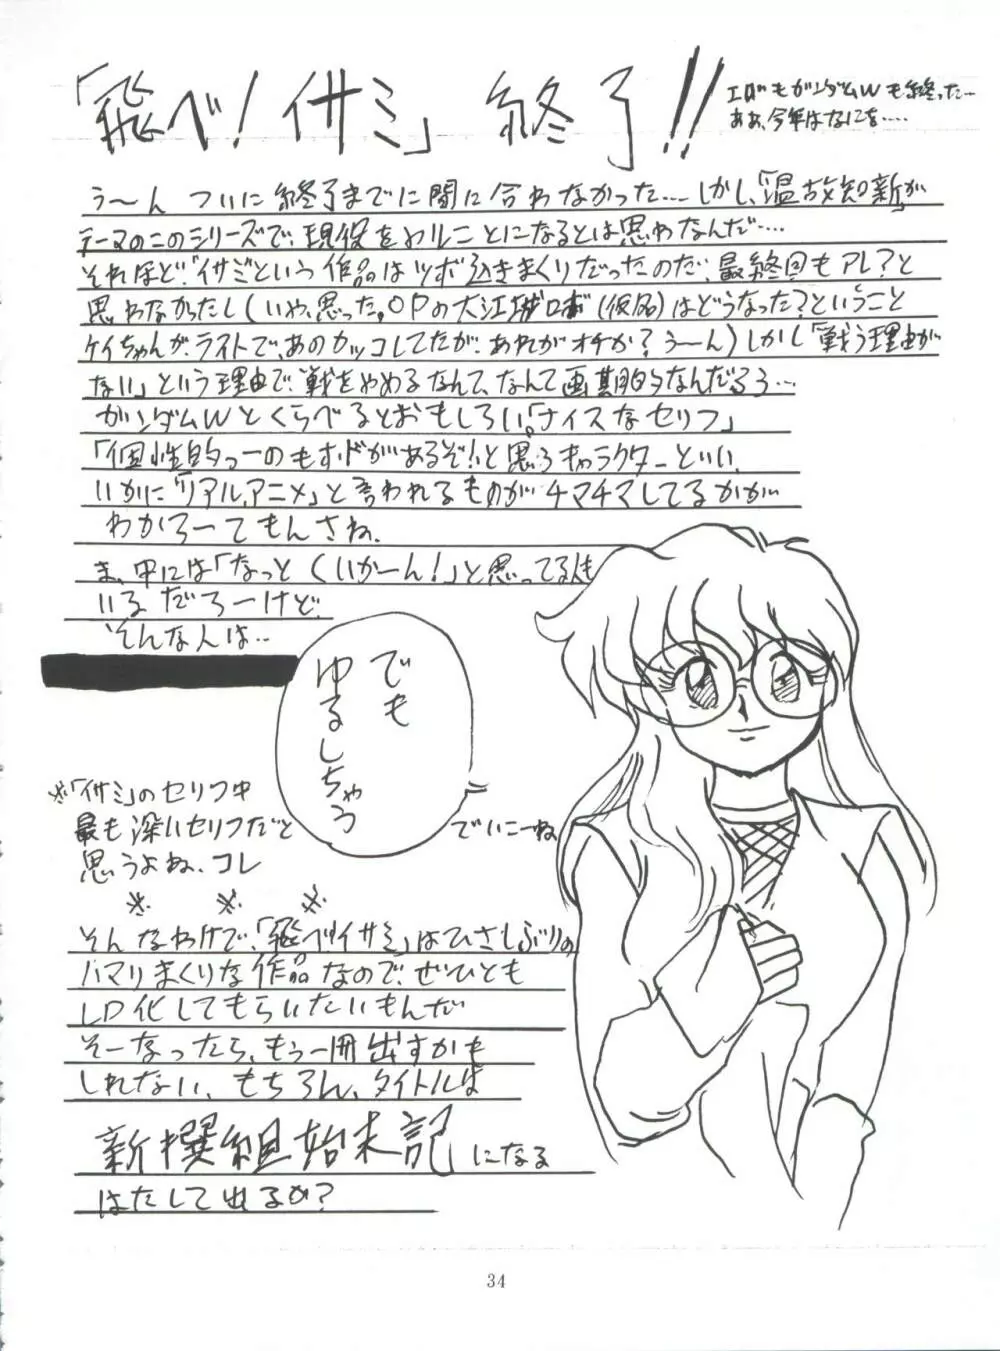 「飛べ!イサミ」終了!!
エヴもガンダムWも終わった…
ああ、今年はなにを……
う〜ん ついに終了までに間に合わなかった…しかし、「温故知新」が
テーマのこのシリーズで、現役をやルことになるとは思わなんだ……
それほど「イサミ」という作品はツボ込きまくりだったのだ、最終回もアレ?と
思わなかったし(いや、思った。OPの大江城ロボ(仮名)はどうなった?ということ
ケイちゃんが、ラストで、あのカッコしてたが、あれがオチか?う〜ん)しかし「戦う理由が
ない」という理由で、戦をやめるなんて、なんて画期的なんだろう…
ガンダムWとくらべるとおもしろい。「ナイスなセリフ」
「個性的っーのもすドがあるぞ!」と思うキャラクターといい、
いかに「リアルアニメ」と言われるものがチマチマしてるかが
わかろーてもんさね。
ま、中には「なっとくいかーん!」と思ってる人も
いるだろーけど、
そんな人は…
でも
ゆるしちゃう
でいこーね
※「イサミ」のセリフ中
最も深いセリフだと
思うよね、コレ
※ ※ ※
そんなわけで、「飛べ!イサミ」はひさしぶりの
ハマリまくりな作品なので、ぜひとも
LD化してもらいたいもんだ
そーなったら、もう一冊出すかも
しれない、もちろん、タイトルは
新撰組始末記になる
はたして出るか?
34